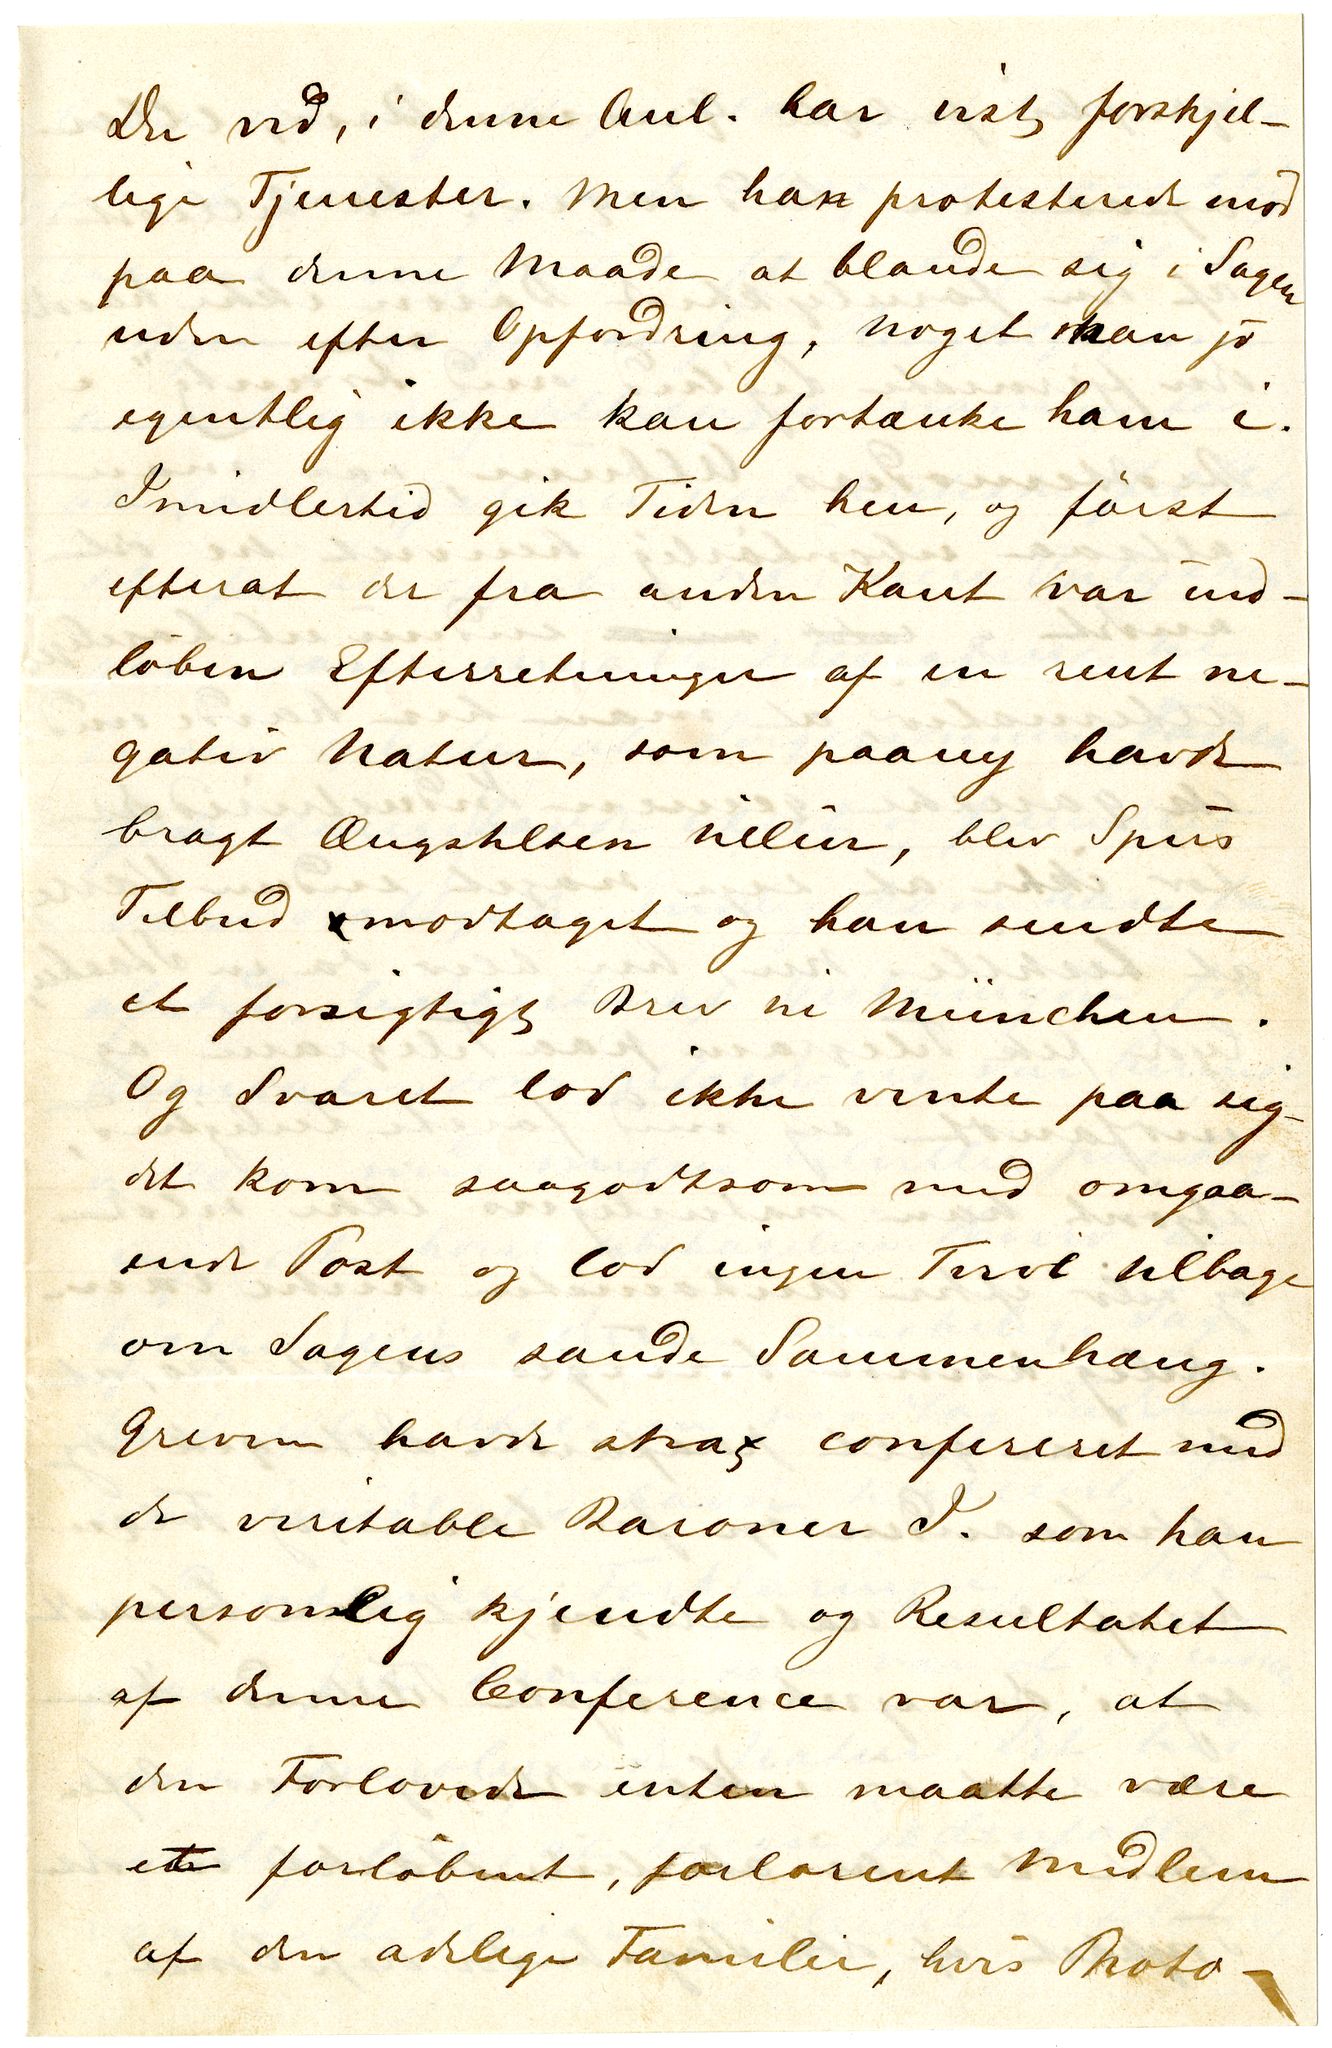 De ved, i denne Anl. har vist forskjel-
lige Tjenester. Men han protesterede mod
paa denne Maade at blande sig i Sagen
uden efter Opfordring, noget man jo
egentlig ikke kan fortænke ham i.
Imidlertid gik Tiden hen, og først
efterat der fra anden Kant var ind-
løben Efterretninger af en rent ne-
gativ Natur, som paany havde
bragt Ængstelsen tillive, blev
Tilbud modtaget og han sendte
et forsigtigt Brev til München.
Og Svaret lod ikke vente paa sig
det kom saagodtsom med omgaa-
ende Post og lod ingen Tvivl tilbage
om Sagens sande Sammenhæng.
Greven havde strax confereret med
de veritable Baroner I. som han
personlig kjendte og Resultatet
af denne Conference var, at
den Forlovede enten maatte være
et forløbent, forlorent Medlem
af den adelige Familie, hvis Photo-